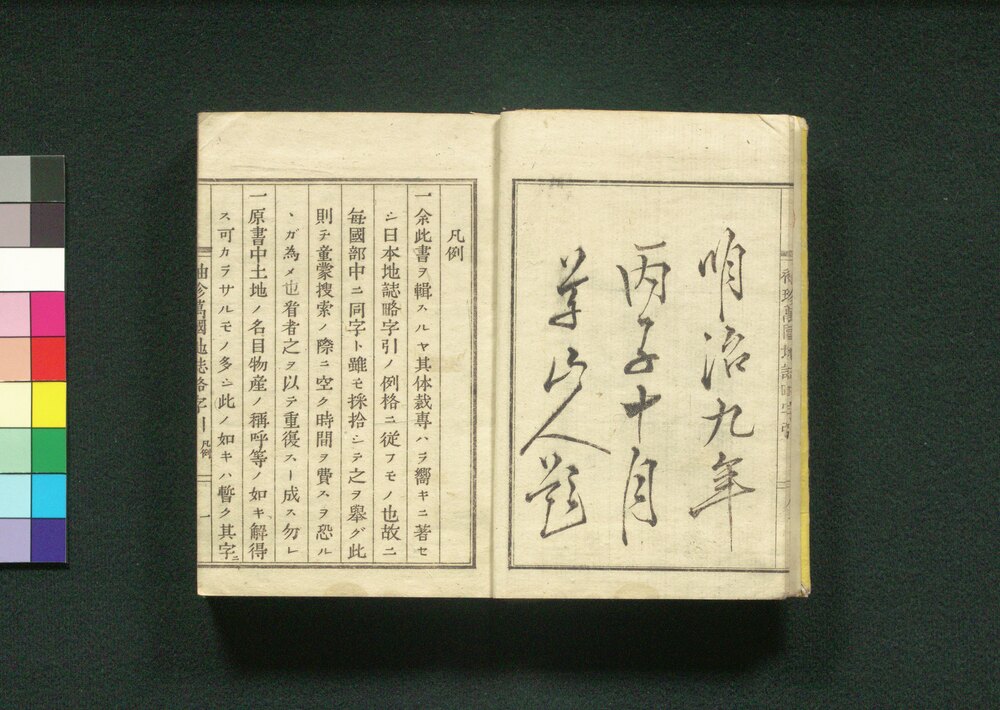 明治九年
丙子十月
峯山人題
袖珍萬國地誌略字引
凡例
一余此書ヲ輯スルヤ其体裁專ハラ嚮キニ著セ
シ日本地誌略字引ノ例格ニ從フモノ也故ニ
毎國部中ニ同字ト雖モ採拾シテ之ヲ擧グ此
則チ童蒙搜索ノ際ニ空ク時間ヲ費スヲ恐ル
ヽガ為メ也看者之ヲ以テ重復スー成ス勿レ
一原書中土地ノ名目物産ノ稱呼等ノ如キ解得
ス可カラサルモノ多シ此ノ如キハ暫ク其字ニ
袖珍萬國地誌略字引 凡例 一